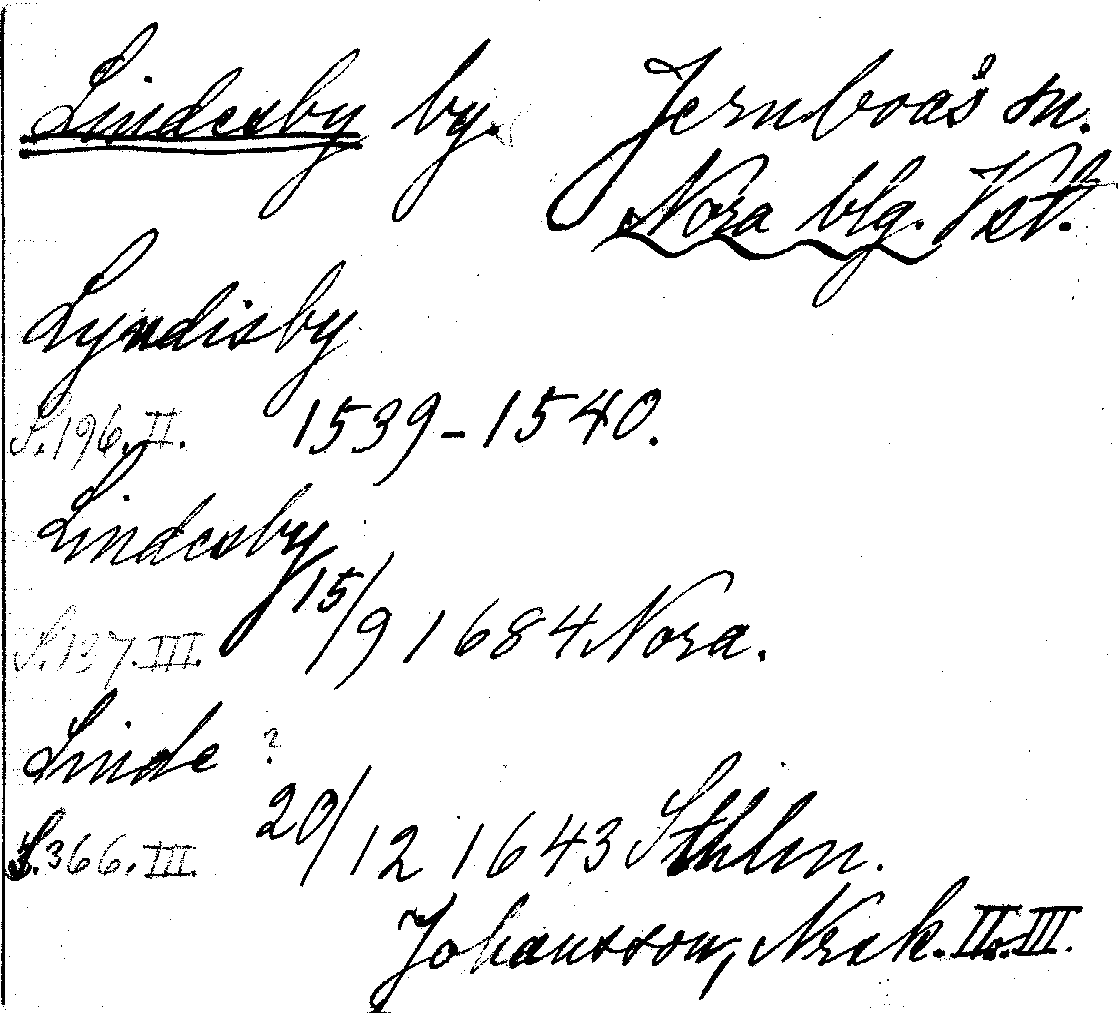 Lindesby by. Jernboås sn.
Nora blg. Vstl.
Lyndisby
S.196.II. 1539-1540.
Lindesby
S.137.III. 15/9 1684 Nora.
Linde ?
S.366.III. 20/12 1643 Sthlm.
Johansson, Norsk. II o. III.